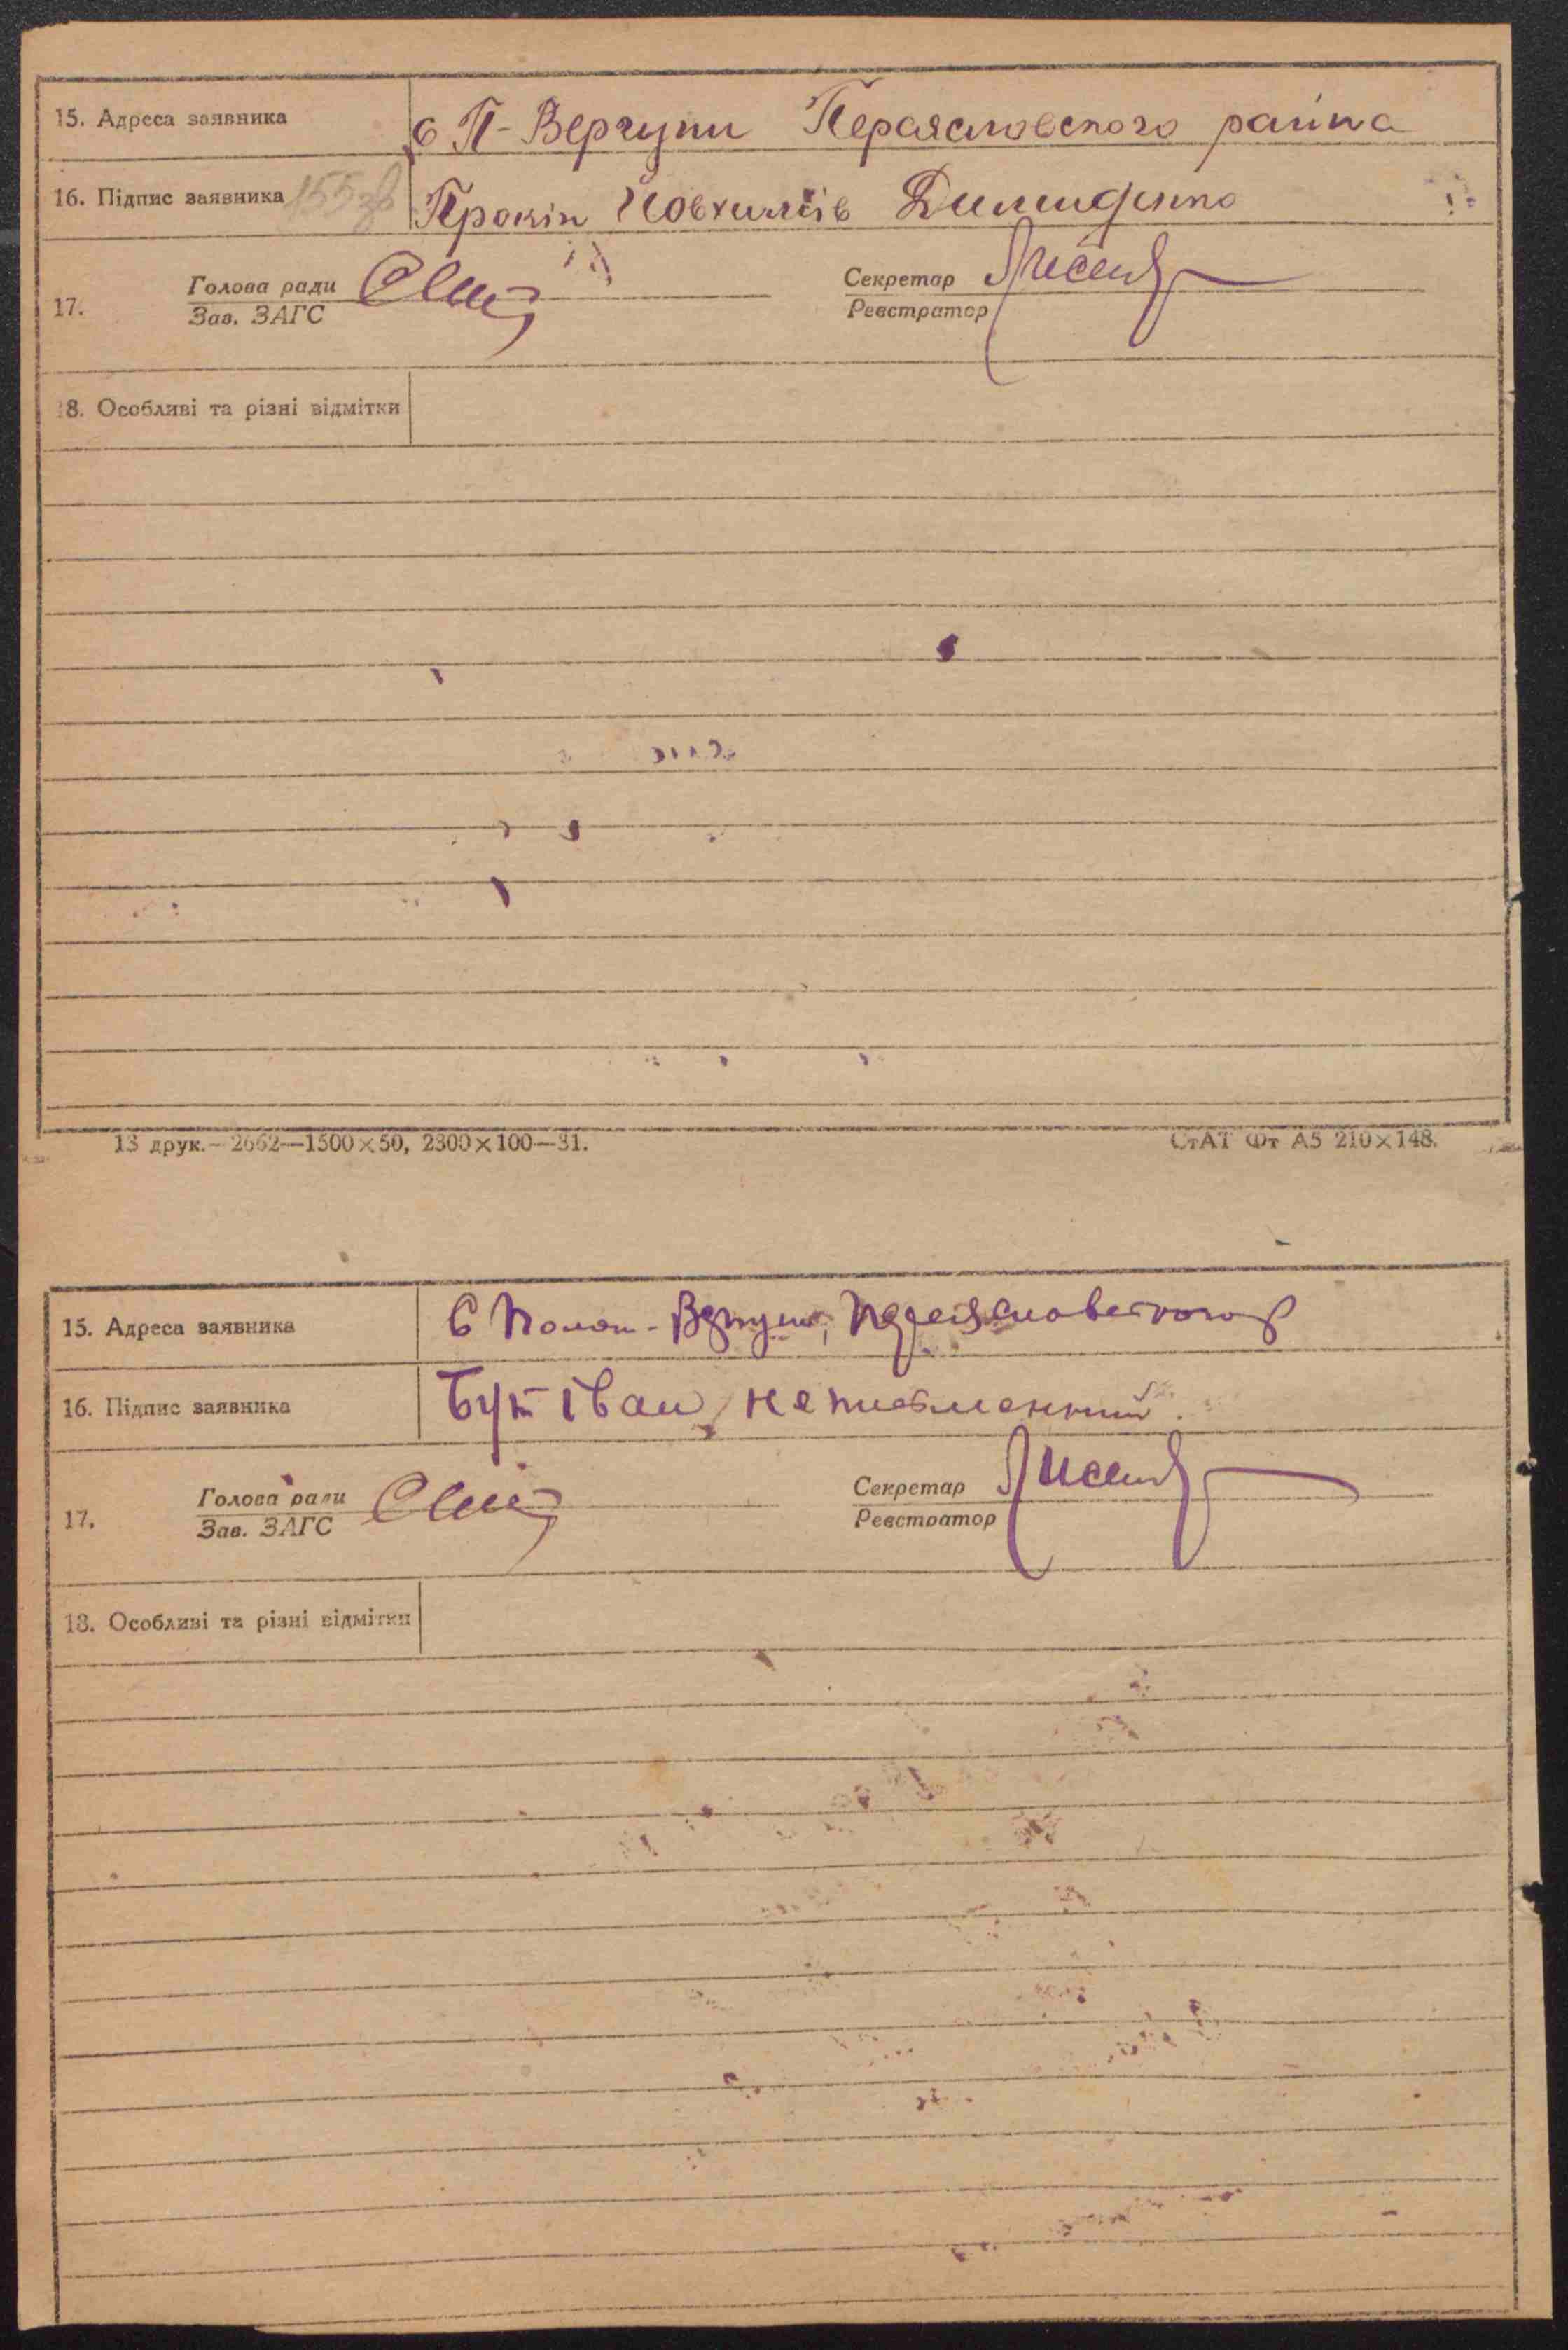 15. Адреса заявника с П-Вергуни Переясловского района
16. Підпис заявника 155зв Прокіп Йовхимів Димиденко
17. Голова ради Секретар
Зав. ЗАГС Реєстратор
18. Особливі та різні відмітки
13 друк.—2662—1500×50, 2300×100—31. СтАТ Фт А5 210×148.
15. Адреса заявника С Полог-Вергуни,
16. Підпис заявника Бут Іван неписьменний.
17. Голова ради Секретар
Зав. ЗАГС Реєстратор
18. Особливі та різні відмітки